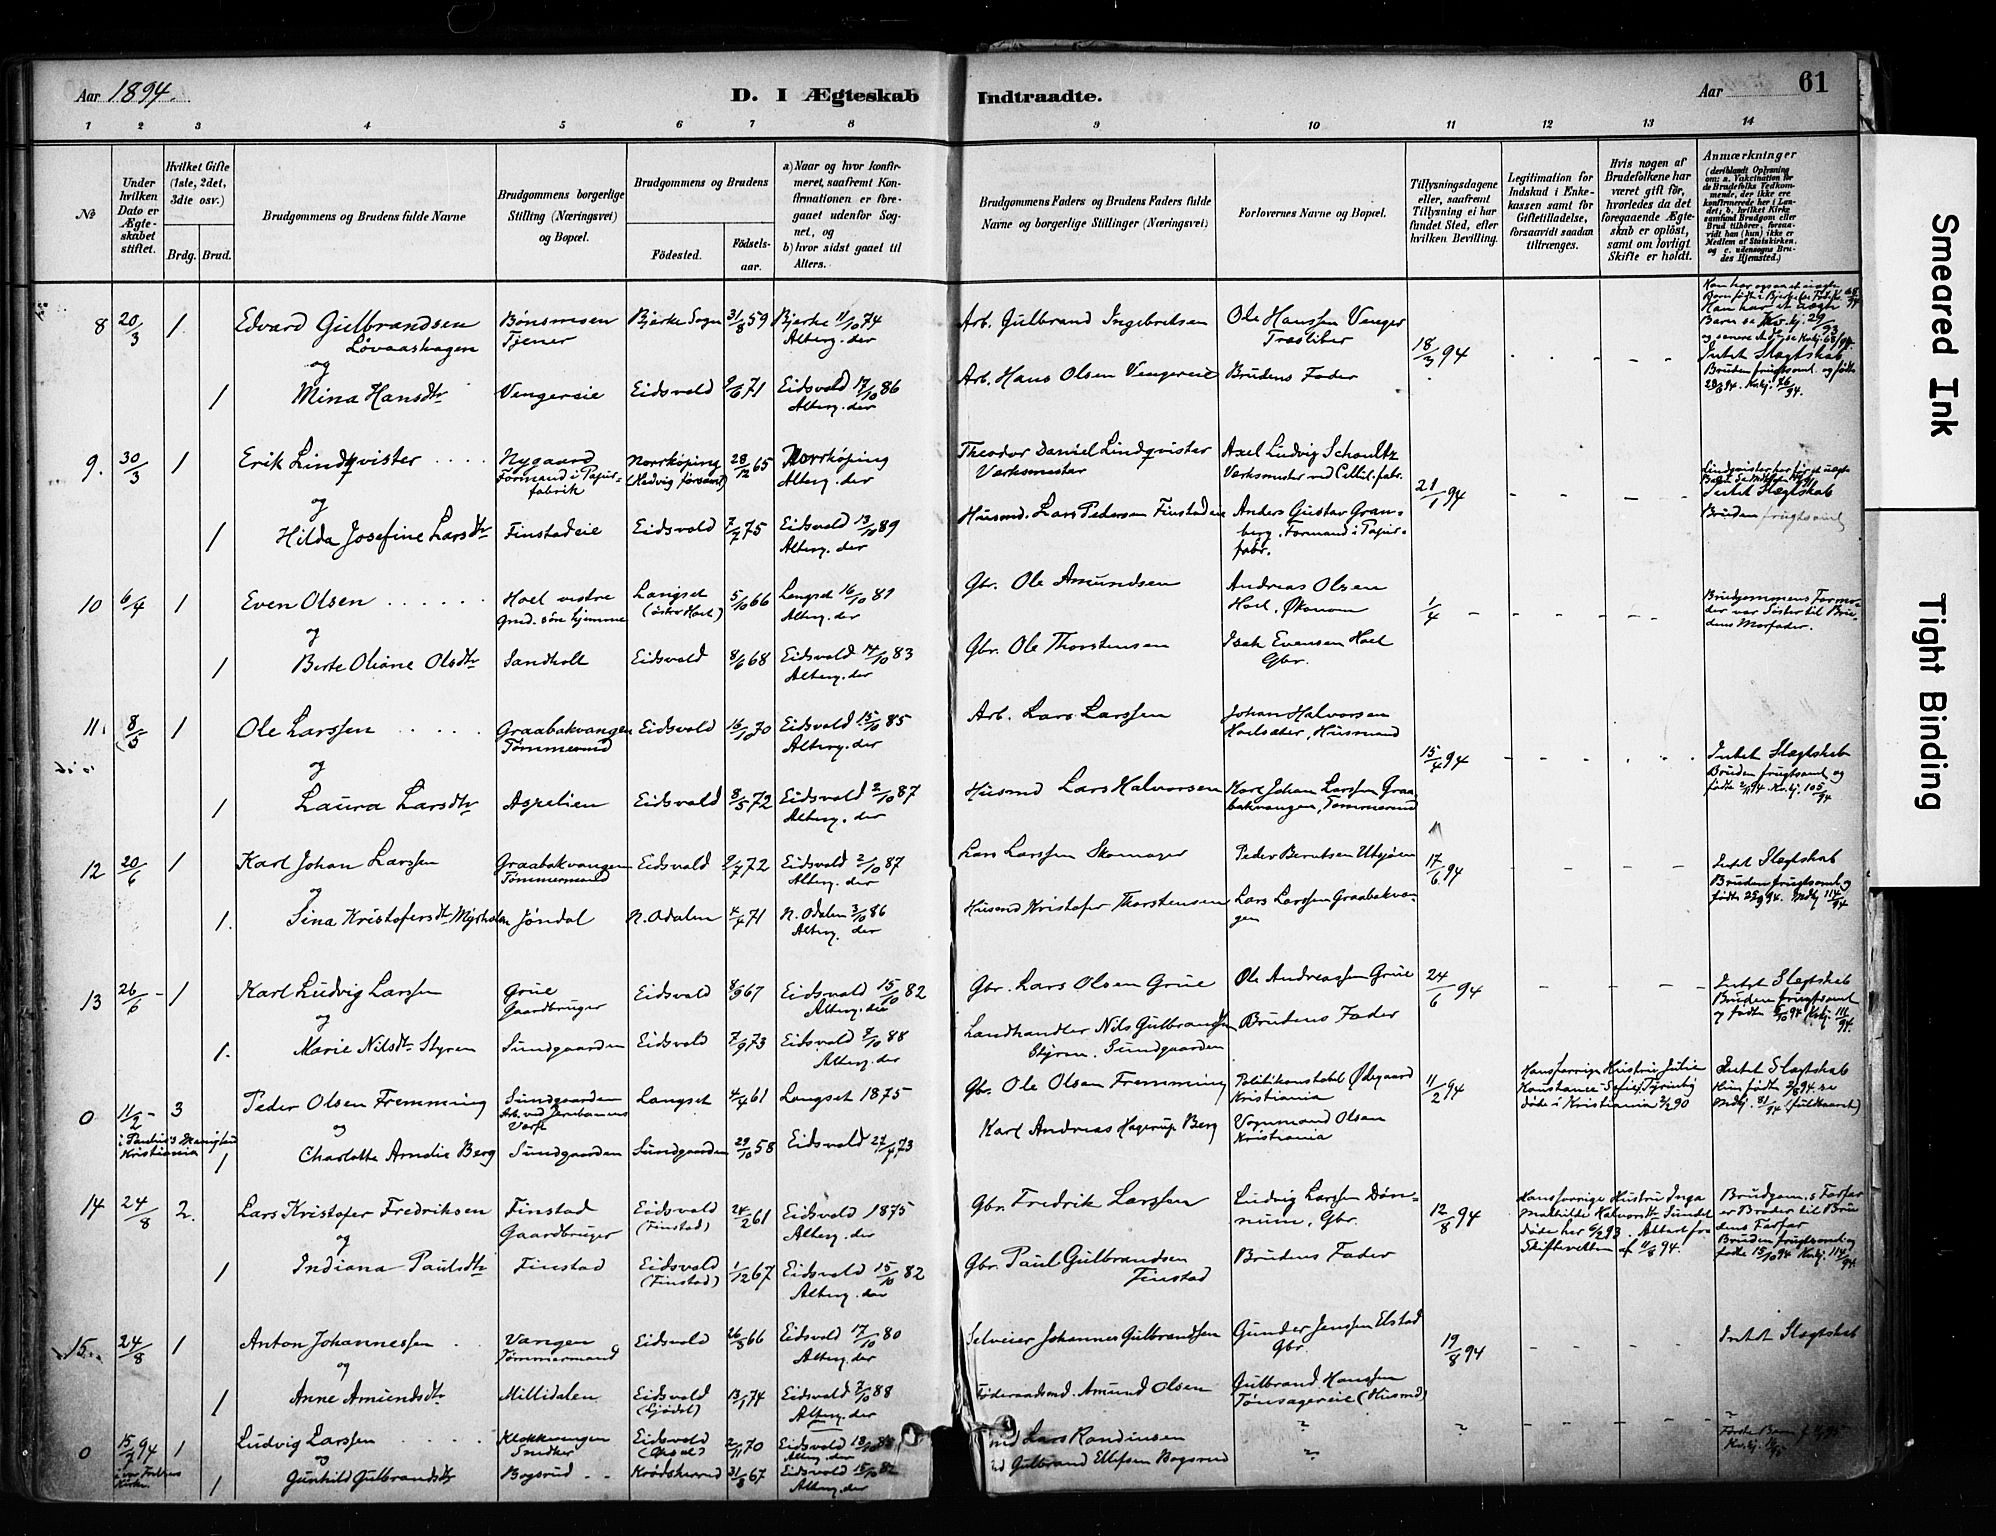 Aar 1894.
D. I Ægteskab Indtraadte.
Aar
61
1 2 3 4 5 6 7 8 9 10 11 12 13 14
No
Under hvilken Dato er Ægteskabet stiftet.
Hvilket Gifte (1ste, 2det, 3die osv.)
Brdg. Brud.
Brudgommens og Brudens fulde Navne
Brudgommens borgerlige Stilling (Næringsvei) og Bopæl.
Brudgommens og Brudens
Fødested.
Fødselsaar.
a) Naar og hvor konfirmeret, saafremt Konfirmationen er foregaaet udenfor Sognet, og
b) hvor sidst gaaet til Alters.
Brudgommens Faders og Brudens Faders fulde Navne og borgerlige Stillinger (Næringsvei)
Forlovernes Navne og Bopæl.
Tillysningsdagene eller, saafremt Tillysning ei har fundet Sted, efter hvilken Bevilling.
Legitimation for Indskud i Enkekassen samt for Giftetilladelse, forsaavidt saadan tiltrænges.
Hvis nogen af Brudefolkene har været gift før, hvorledes da det foregaaende Ægteskab er opløst, samt om lovligt Skifte er holdt.
Anmærkninger
(deriblandt Oplysning om: a. Vakcination for de Brudefolks Vedkommende, der ikke ere konfirmerede her i Landet; b. hvilket Kirkesamfund Brudgom eller Brud tilhører, forsaavidt han (hun) ikke er Medlem af Statskirken, og c. udensogns Brudes Hjemsted.)
8 20/3 1 Edvard Gulbrandsen Løvaashagen Bønsmoen Tjener Bjerke Sogn 31/8 59 Bjerke 11/10 74 Alterg. der Arb. Gulbrand Ingebretsen Ole Hanssen Venger Træsliber 18/3 94
og
1 Mina Hansdtr Vengereie Eidsvold 9/6 71 Eidsvold 17/10 86 Alterg. der Arb. Hans Olsen Vengereie Brudens Fader
Intet Slægtskab
Bruden frugtsoml. og født
9. 30/3 1 Erik Lindqvister Nygaard Formand i Papirfabrik Norrköping (Hedvig församl) 28/12 65 Norrköping Alterg. der Theodor Daniel Lindqvister Værksmester Axel Ludvig Schoultz Værksmester ved Cellul. fabr. 21/1 94
og
1 Hilda Josefine Larsdtr Finstadeie Eidsvold 7/7 75 Eidsvold 13/10 89 Alterg. der Husmd. Lars Pedersen Finstadeie Anders Gustav Granberg. Formand i Papirfabr.
Intet Slægtskab
Bruden frugtsoml
10 6/4 1 Even Olsen Hoel vestre Gmd. søn hjemme Langset (østre Hoel) 5/10 66 Langset 16/10 81 Alterg. der Gbr. Ole Amundsen Andreas Olsen Hoel, Økonom 1/4
og
1 Berte Oliane Olsdtr Sandholt Eidsvold 8/6 68 Eidsvold 14/10 83 Alterg. der Gbr. Ole Thorstensen Isak Evensen Hoel Gbr.
Brudgommens Farmoder var Søster til Brudens Morfader.
11. 8/5 1 Ole Larssen Graabakvangen Tømmermd Eidsvold 16/10 70 Eidsvold 15/10 85 Alterg. der Arb. Lars Larssen Johan Halvorsen Hoelsæter, Husmand 15/4 94
og
1 Laura Larsdtr Asgelien Eidsvold 8/5 72 Eidsvold 2/10 87 Alterg. der Husmd Lars Halvorsen Karl Johan Larssen Graabakvangen, Tømmermd
Intet Slægtskab
Bruden frugtsoml og fødte 2/11 94 Kv.kj. 105/94
12 20/6 1 Karl Johan Larssen Graabakvangen Tømmermand Eidsvold 2/7 72 Eidsvold 2/10 87 Alterg. der Lars Larssen Skomager Peder Berntsen Utsjøen 17/6 94
og
1. Sina Kristofersdtr Myrholen Jøndal N. Odalen 4/4 71 N. Odalen 3/10 86 Alterg. der Husmd Kristofer Thorstensen Lars Larssen Graabakvangen
Intet Slægtskab
Bruden frugtsoml og fødte 25/9 94. Mdkj 114/94
13 26/6 1 Karl Ludvig Larssen Grue Gaardbruger Eidsvold 8/9 67 Eidsvold 15/10 82 Alterg. der Gbr. Lars Olsen Grue Ole Andreassen Grue 24/6 94
og
1. Marie Nilsdtr Styren Sundgaarden Eidsvold 7/9 73 Eidsvold 7/10 88 Alterg. der Landhandler Nils Gulbrandsen Styren. Sundgaarden Brudens Fader
Intet Slægtskab
Bruden frugtsoml og fødte 6/10 94 Kv.kj. 111/94.
0 11/2 3 Peder Olsen Fremming Sundgaarden Arb. ved Jernbanens Værft Langset 4/4 61 Langset 1875 Gbr. Ole Olsen Fremming Politikonstabel Ødegaard Kristiania 11/2 94
i Paulus's Menighed Kristiania
og
1 Charlotte Amalie Berg Sundgaarden Sundgaarden 29/10 58 Eidsvold 27/4 73 Karl Andreas Hagerup Berg Vognmand Olsen Kristiania
Hans forrige Hustru Julie Konstance Sofie Tyrintz døde i Kristiania 2/2 90
Intet Slægtskab
Hun fødte 2/8 94 se Mdkj. 81/94 (fuldbaaret)
14 24/8 2. Lars Kristofer Fredriksen Finstad Gaardbruger Eidsvold (Finstad) 24/2 61 Eidsvold 1875 Alterg. der Gbr. Fredrik Larssen Ludvig Larssen Dønnum, Gbr. 12/8 94
og
1 Indiana Paulsdtr Finstad Eidsvold (Finstad) 1/12 67 Eidsvold 15/10 82 Alterg. der Gbr. Paul Gulbrandsen Finstad Brudens Fader
Hans forrige Hustru Inga Mathilde Halvorsdtr Sundet døde her 6/2 93. Attest fra Skifteretten af 11/8 94.
Brudgom.s Farfar er Broder til Brudens Farfar
Bruden frugtsoml og fødte 15/10 94 Kv.kj. 114/94.
15. 24/8 1 Anton Johannessen Vangen Tømmermand Eidsvold 26/3 66 Eidsvold 17/10 80 Alterg. der Selveier Johannes Gulbrandsen Gunder Jenssen Elstad Gbr. 19/8 94
og
1 Anne Amundsdtr Millidalen Eidsvold (Ljødal) 13/1 74 Eidsvold 7/10 88 Alterg. der Føderaadsmd. Amund Olsen Gulbrand Hanssen Tønsagereie (Husmd)
Intet Slægtskab
0 15/7 94 1 Ludvig Larssen Klokkvangen Snedker Eidsvold 2/11 70 Eidsvold Alterg. der Lars Randinsen
og
1 Gunhild Gulbrandsdtr Bogsrud Krødsherred 31/8 67 Eidsvold 15/10 82 Alterg. der Gulbrand Ellefsen Bogsrud
Første Barn
Smeared Ink
Tight Binding